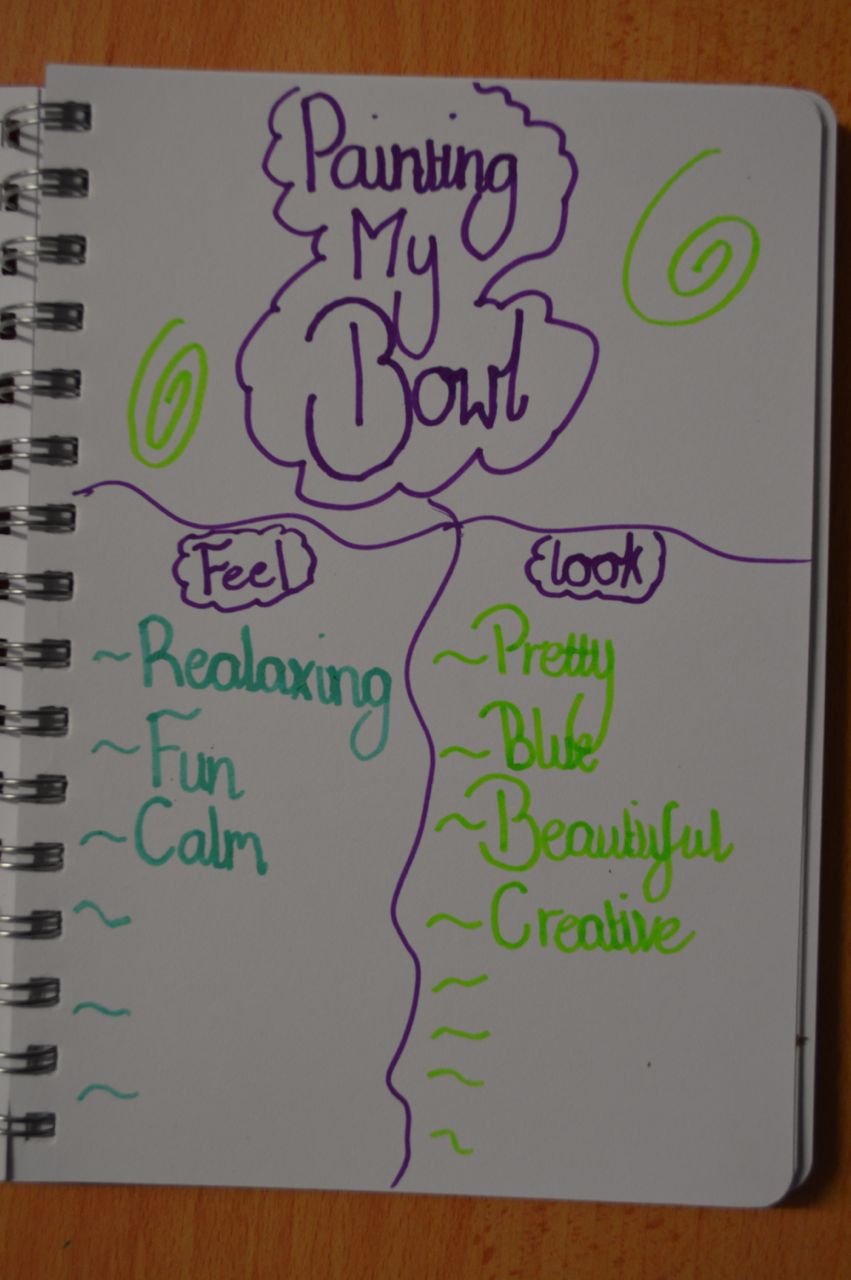 Painting
My
Bowl
Feel
look
~Realaxing
~Fun
~Calm
~
~
~
~Pretty
~Blue
~Beautiful
~Creative
~
~
~
~